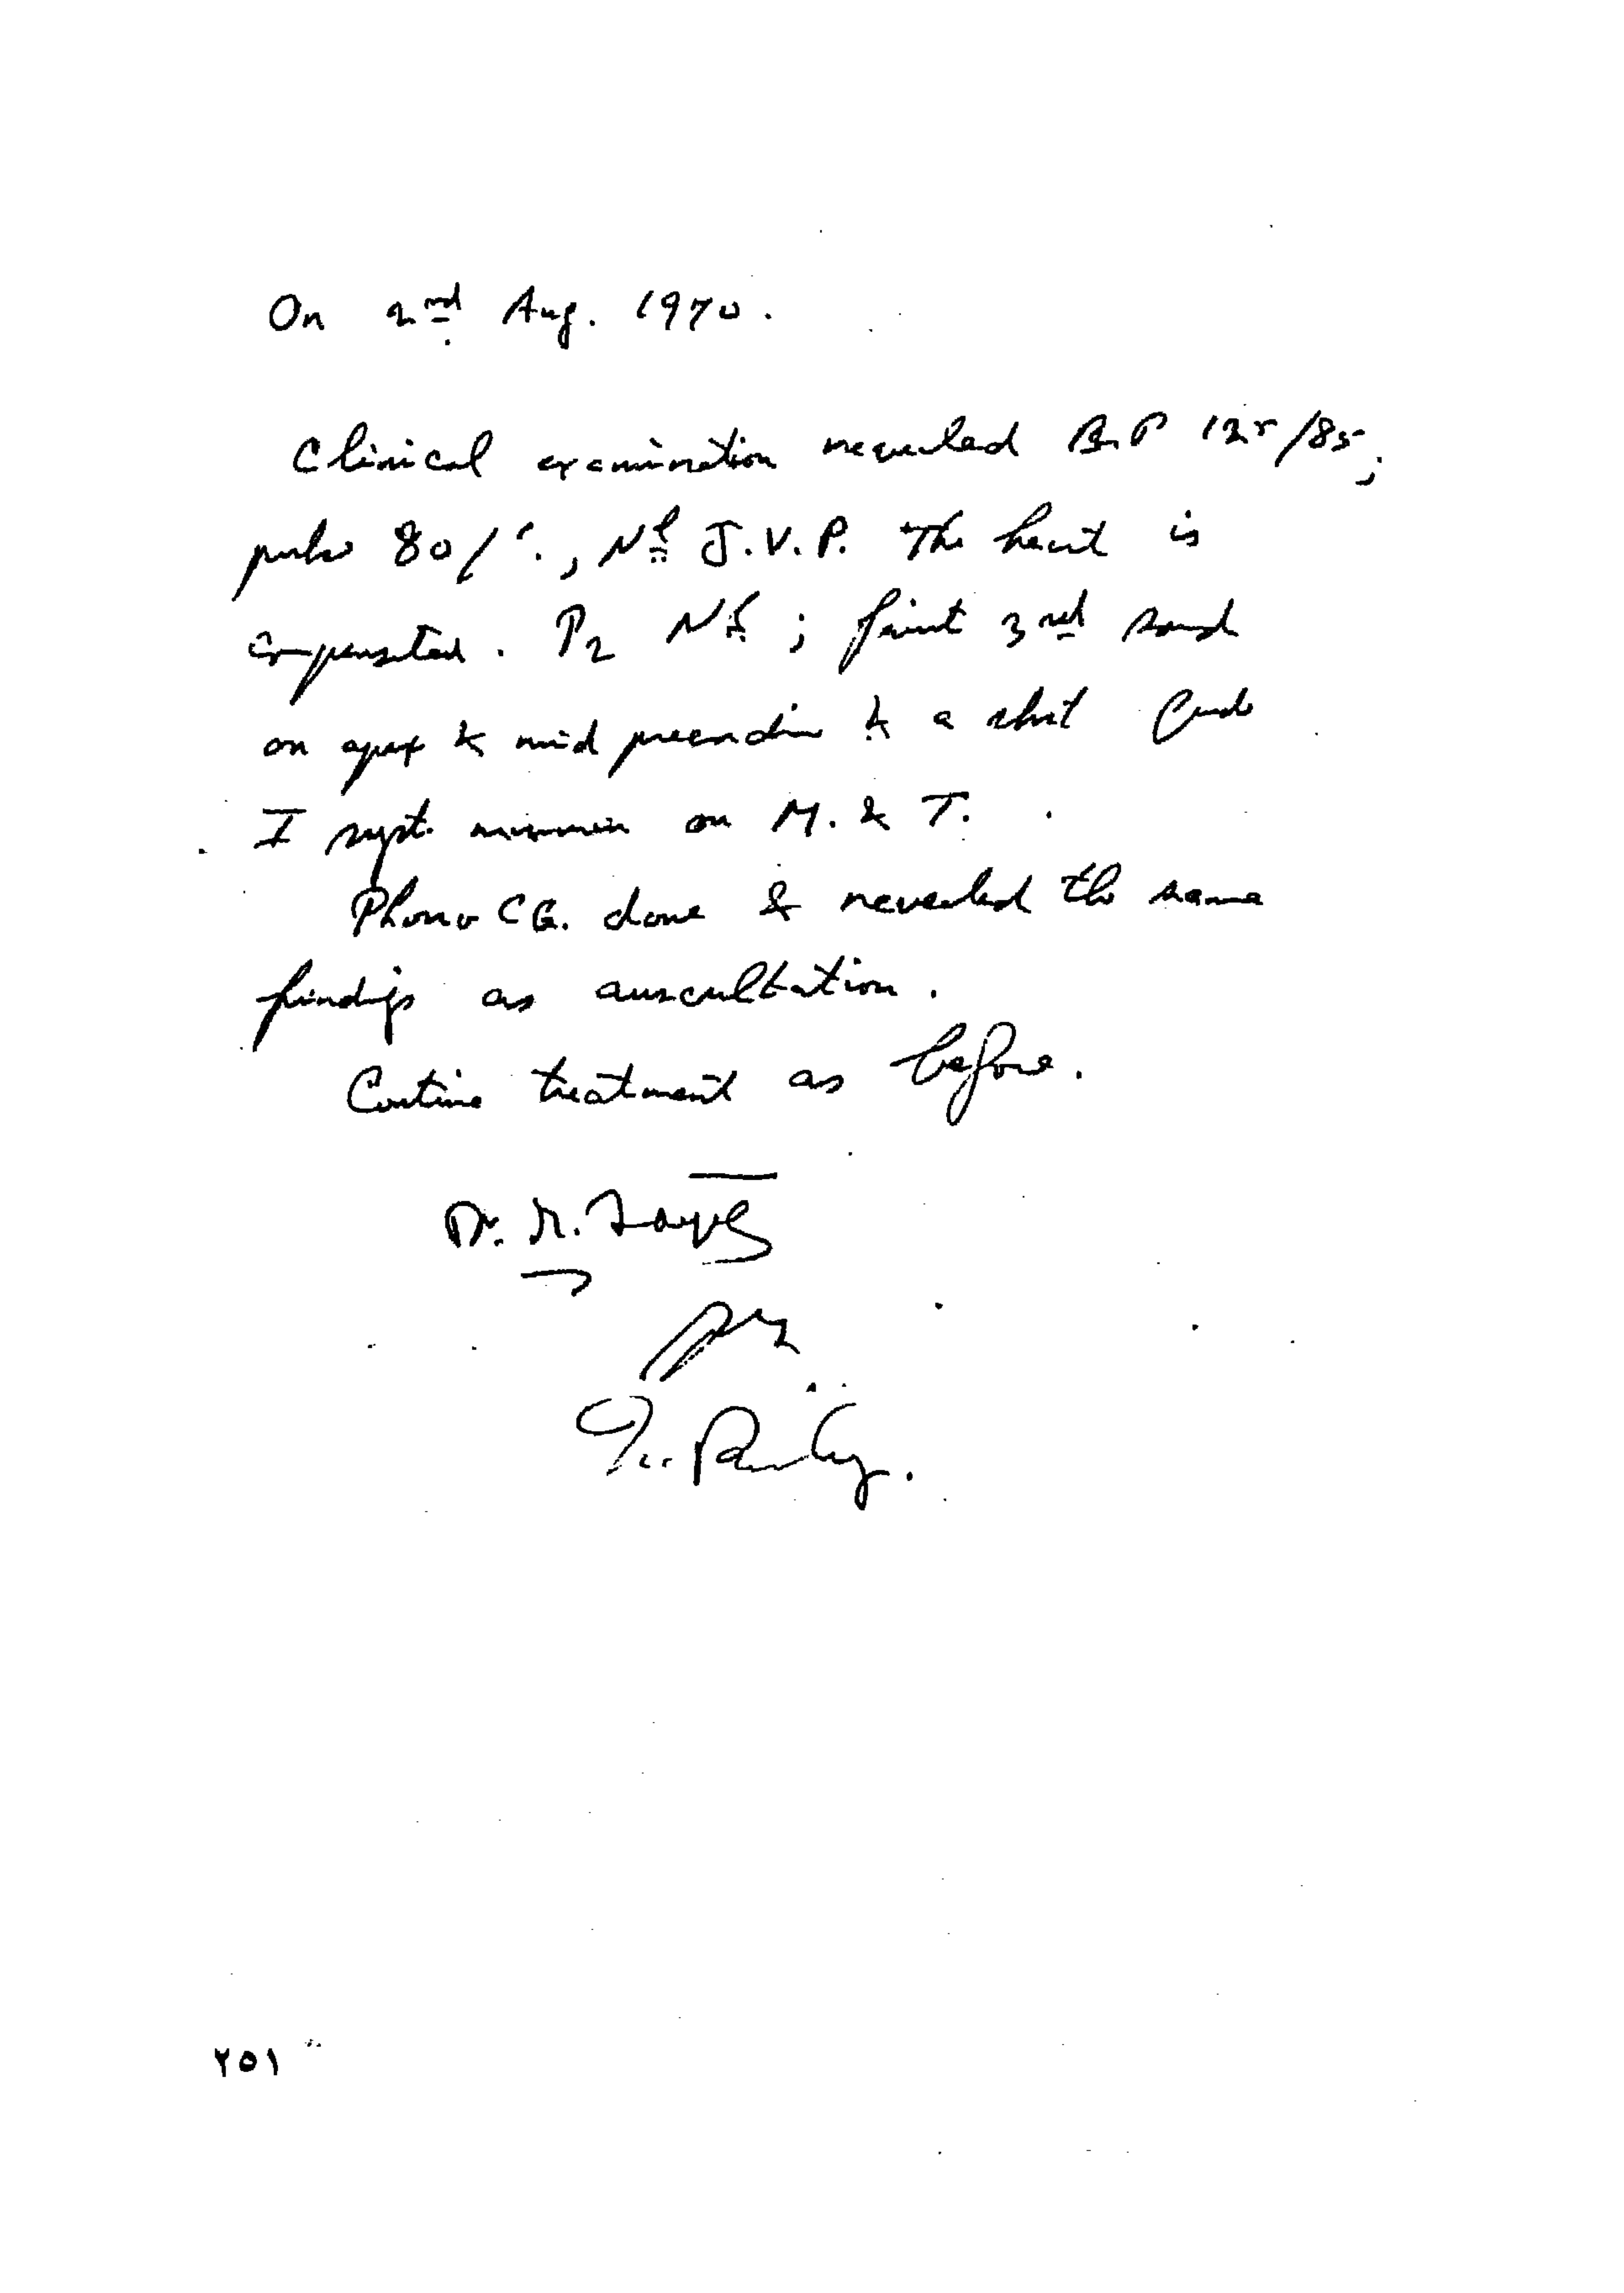 On 2nd Aug. 1970.
Clinical examination revealed B.P 125/85;
pulse 80/'., Nl J.V.P. The heart is
compensated. P2 Nl; faint 3rd sound
on apex & mid precordium & a short Grade
I syst. murmur on M. & T.
Phono CG. done & revealed the same
findings as auscultation.
Continue treatment as before.
Dr.
٢٥١